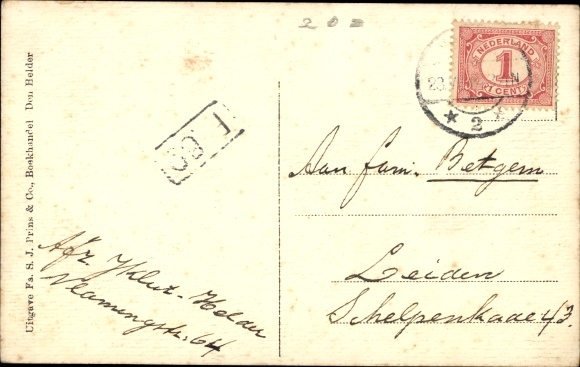 202
NEDERLAND
1
1 CENT
23
N
2
Aan fam. Betgem
Leiden
Schelpenkade 43.
Afz. Kluz-Helder
Vlamingstr. 64
Uitgave Fa. S. J. Prins & Co., Boekhandel Den Helder